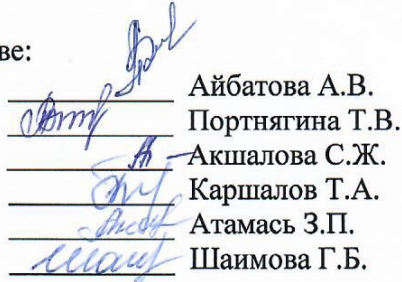 ве:
Айбатова А.В.
Портнягина Т.В.
Акшалова С.Ж.
Каршалов Т.А.
Атамась З.П.
Шаимова Г.Б.